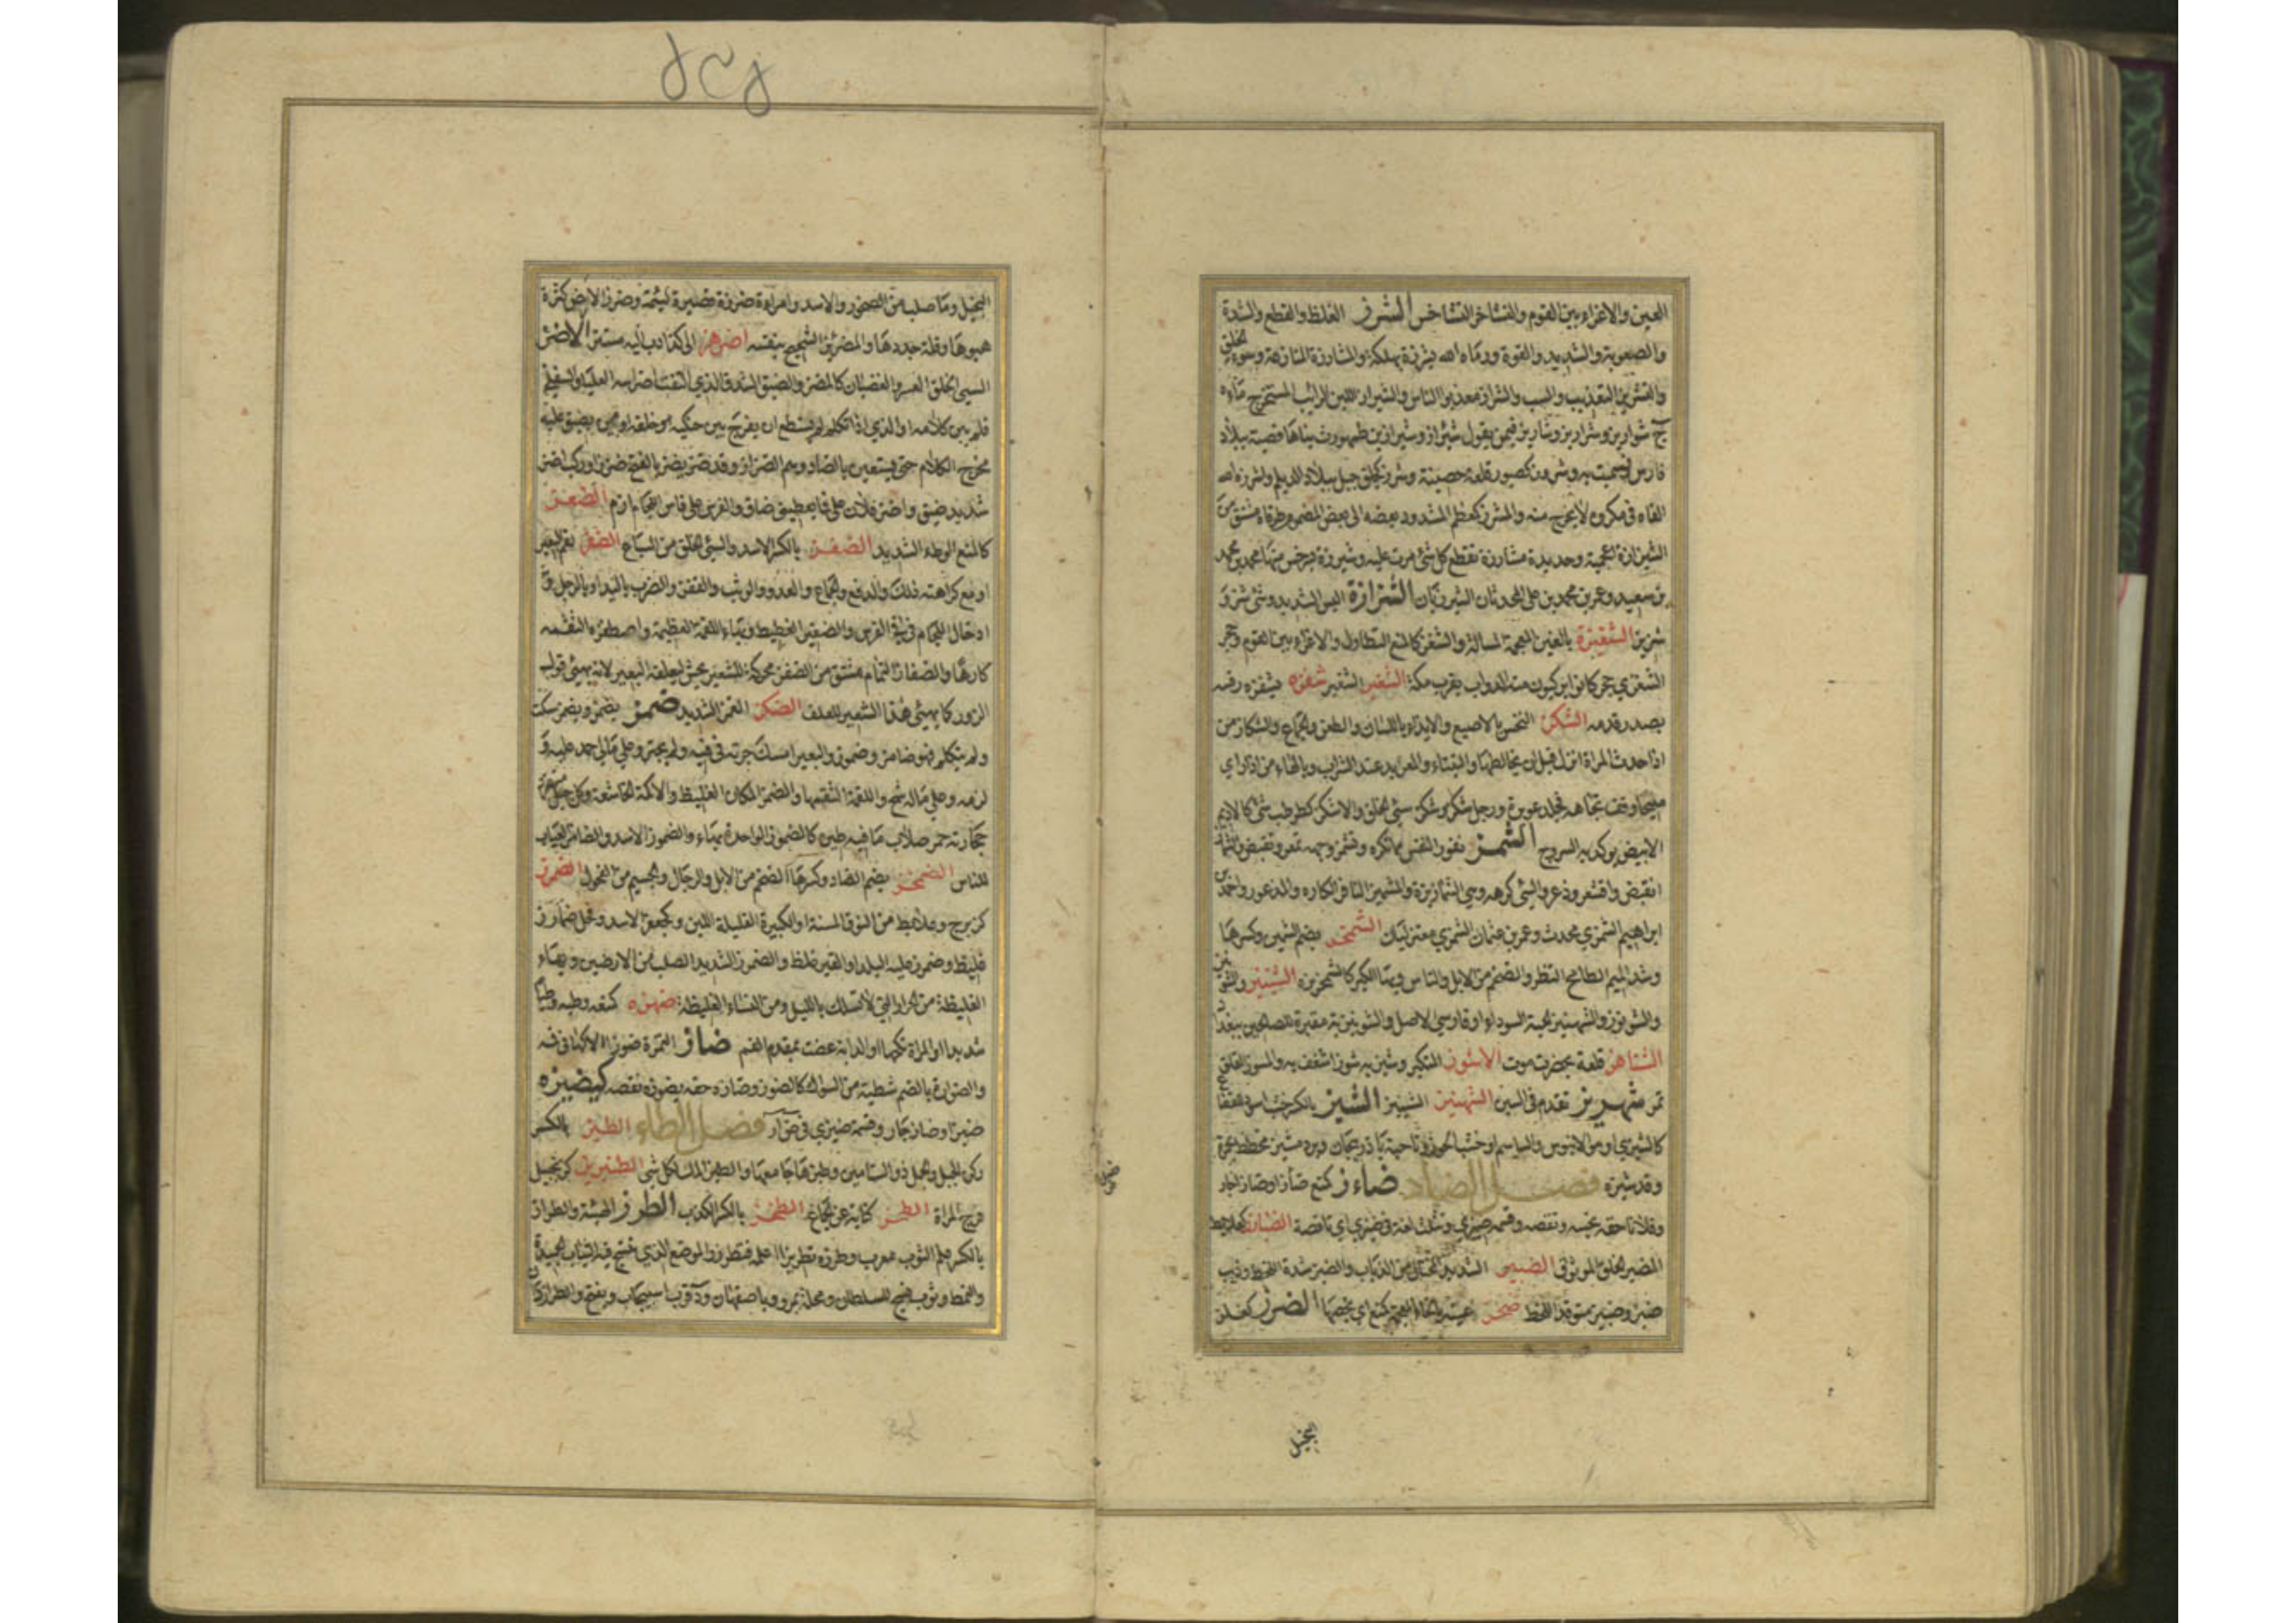 العين والاغراء بين القوم والتشاخز التشاخس الشرز الغلظ والقطع والشدة
والصعوبة والشديد والقوة ورماه الله بشرزة بهلكة والمشارزة المنازعة وسوء الخلق
والتشريز التعذيب والسب والشراز معذبوا الناس والشيراز اللبن الرائب المستخرج ماؤه
ج شواريز وشراريز وشآريز فيمن يقول شئراز وشيراز بن طهمورث بناها قصبة ببلاد
فارس فسميت به وشروز كصبور قلعة حصينة وشرز كجلق جبل ببلاد الديلم واشرزه الله
القاه في مكروه لا يخرج منه والمشرز كمعظم المشدود بعضه الى بعض المضموم طرفاه مشتق من
الشيرازة اعجمية وحديدة مشارزة تقطع كل شئ مرت عليه وشيرزة بسرخس منها محمد بن محمد
بن سعيد وعمر بن محمد بن علي المحدثان الشيرزيان الشنرازة اليبس الشديد وشئ شنز
شزيز الشغيزة بالغين المعجمة المسلة والشغز كالمنع التطاول والاغراء بين القوم وحجر
الشغزى حجر كانوا يركبون منه الدواب بقرب مكة الشغيز الشغير شفزه يشفزه رفسه
بصدر قدمه الشكز النخس بالاصبع والايذاء باللسان والطعن والجماع والشكاز من
اذا حدث المراة انزل قبل ان يخالطها والتيتاء والمعربد عند الشراب وبالهاء من اذا راى
مليحا وقف تجاهه فجلد عميرة ورجل شكز وشكز سئ الخلق والاشكز كطرطب شئ كالاديم
الابيض يوكد به السروج الشمز نفور النفس مما تكره وتشمز وجهه تمعر وتقبض واشماز
انقبض واقشعر وذعر والشئ كرهه وهي الشمازيزة والمشمئز النافر الكاره والمذعور واحمد بن
ابراهيم الشمزي محدث وعمر بن عثمان الشمزي معتزليان الشمخز بضم الشين وكسرها
وشد الميم الطامح النظر والضخم من الابل والناس وبهاء الكبر كالشمخزيزة الشينيز والشونيز
والشونوز والشهنيز الحبة السوداء او فارسي الاصل والشونيزية مقبرة للصالحين ببغداد
الشناهز قلعة بحضرموت الاشوز المتكبر وشيز به شوزا شغف به والمشوز القلق
تمر شهريز تقدم في السين الشهنيز الشينيز الشيز بالكسر خشب اسود للقصاع
كالشيزى او هو الابنوس والساسم او خشب الجوز وناحية باذربيجان وبرد مشيز مخطط بحمرة
وقد شيزه فصل الضاد ضاءز كمنع ضأزا وضازا جار
وفلانا حقه بخسه ونقصه وقسمة ضئزى وتثلث لغة في ضيزى اي ناقصة الضبارز كعلابط
المضبر الخلق الموثق الضبيز الشديد المحتال من الذئاب والضبز شدة اللحظ وذئب
ضبز وضبيز متوقد اللحظ ضخز عينه بالخاء المعجمة كمنع اي بخصها الضرز كفلز
البخيل
البخيل وما صلب من الصخور والاسد وامراة ضرزة قصيرة لئيمة وضرز الارض كثرة
هبوها وقلة جددها والمضرئز الشحيح بنفسه اضرهز الى كذا دب اليه مستترا الاضز
السئ الخلق العسر والغضبان كالمضز والضيق الشدق الذي التقت اضراسه العليا والسفلى
فلم يبن كلامه او الذي اذا تكلم لم يستطع ان يفرج بين حنكيه هو خلقة او من يضيق عليه
مخرج الكلام حتى يستعين بالضاد وهم الضزاز وقد ضز يضز بالفتح ضززا وركب اضز
شديد ضيق واضز فلان علي فما يعطيني ضاق والفرس على فاس اللجام ازم الضعز
كالمنع الوطء الشديد الضغز بالكسر الاسد والسئ الخلق من السباع الضفز لقم البعير
او مع كراهته ذلك والدفع والجماع والعدو والوثب والقفز والضرب باليد او بالرجل و
ادخال اللجام في في الفرس والضفيز الغطيط وبهاء اللقمة العظيمة واضطفزه التقمه
كارها والضفاز النمام مشتق من الضفز محركة للشعير يجش ليعلفه البعير لانه يهيئ قول
الزور كما يهيئ هذا الشعير للعلف الضكز الغمز الشديد ضمز يضمز ويضمز سكت
ولم يتكلم فهو ضامز وضموز والبعير امسك جرته في فيه ولم يجتر وعلى مالي جمد عليه و
لزمه وعلى ماله شح واللقمة التقمها والضمز المكان الغليظ والاكمة الخاشعة وكل جبل منفرد
حجارته حمر صلاب ما فيه طين كالضموز الواحدة بهاء والضموز الاسد والضامز العياب
للناس الضمخز بضم الضاد وكسرها الضخم من الابل والرجال والجسيم من الفحول الضمرز
كزبرج وعلابط من النوق المسنة او الكبيرة القليلة اللبن وكجعفر الاسد وفحل ضمارز
غليظ وضمرز عليه البلد او القبر غلظ والضمرز الشديد الصلب من الارضين وبهاء
الغليظة من الحرار التي لا تسلك بالليل ومن النساء الغليظة ضهزه كمنعه وطئه وطأ
شديدا او المراة نكحها او الدابة عضت بمقدم الفم ضاز التمرة ضوزا لاكها في فمه
والضوازة بالضم شظية من السواك كالضوز وضازه حقه يضوزه نقصه كيضيزه
ضيزا وضاز جار وقسمة ضيزى في ضأز فصل الطاء الطبز بالكسر
ركن الجبل والجمل ذو السنامين وطبزها جامعها والطبز الملء لكل شئ الطنبريز كزنجبيل
فرج المراة الطحز كناية عن الجماع الطخز بالكسر الكذب الطرز الهيئة والطراز
بالكسر علم الثوب معرب وطرزه تطريزا اعلمه فتطرز والموضع الذي تنسج فيه الثياب الجيدة
والنمط وثوب نسج للسلطان ومحلة بمرو وباصفهان ود قرب اسبيجاب ويفتح والطرازدان